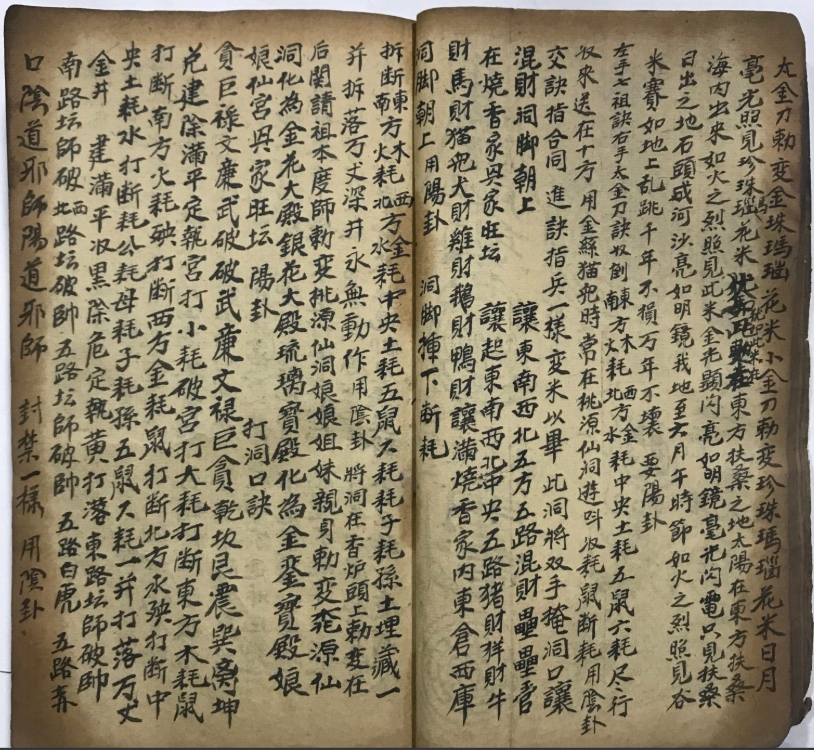 左金刀勅变金珠瑪瑙花米小金刀勅变珍珠瑪瑙花米日月
亳光照見珍珠瑪瑙花米東方扶桑之地太陽在東方扶桑
海内出來如火之烈照見此米金光顕闪亮如明鏡亳光闪電只見扶桑
日出之地石頭成河沙亮如明鏡我地至六月午時節如火之烈照見谷
米賽如地上乱跳千年不損万年不壞要陽卦
左手七祖訣右手太金刀訣收倒東方木耗西方金耗南方火耗北方水耗中央土耗五鼠六耗尽行
收來送在十方用金絲猫兒時常在桃源仙洞遊叫收耗鼠断耗用陰卦
交訣指合同進訣指兵一樣变米以畢此洞將双手掩洞口讓
混財洞脚朝上讓東南西北五方五路混財壘壘
在燒香家興家旺坛讓起東南西北中央五路猪財牂財牛
財馬財猫兒犬財雞財鵝財鴨財讓滿燒香家内東倉西庫
洞脚朝上用陽卦洞脚揮下断耗
拆断東方木耗西方金耗南方火耗北方水耗中央土耗五鼠六耗耗子耗孫土埋藏一
并拆落万丈深井永無動作用陰卦將洞在香炉頭上勅变在
后関請祖本度師勅变桃源仙洞娘娘姐妹親身勅变桃源仙
洞化為金花大殿銀花大殿琉璃寶殿化為金銮寶殿娘
娘仙宮興家旺坛陽卦打洞口訣
貪巨禄文亷武破破武亷文禄巨貪乾坎艮震巽离坤
兑建除滿平定執宮打小耗破宮打大耗打断東方木耗鼠
打断南方火耗殃打断西方金耗鼠打断北方水殃打断中
央土耗水打断耗公耗母耗子耗孫五鼠六耗一并打落万丈
金井建滿平收黑除危定執黄打落東路坛師破帥
南路坛師破西北路坛師破帥五路坛師破帥五路白虎五路弃
口陰道邪師陽道邪師封禁一樣用陰卦